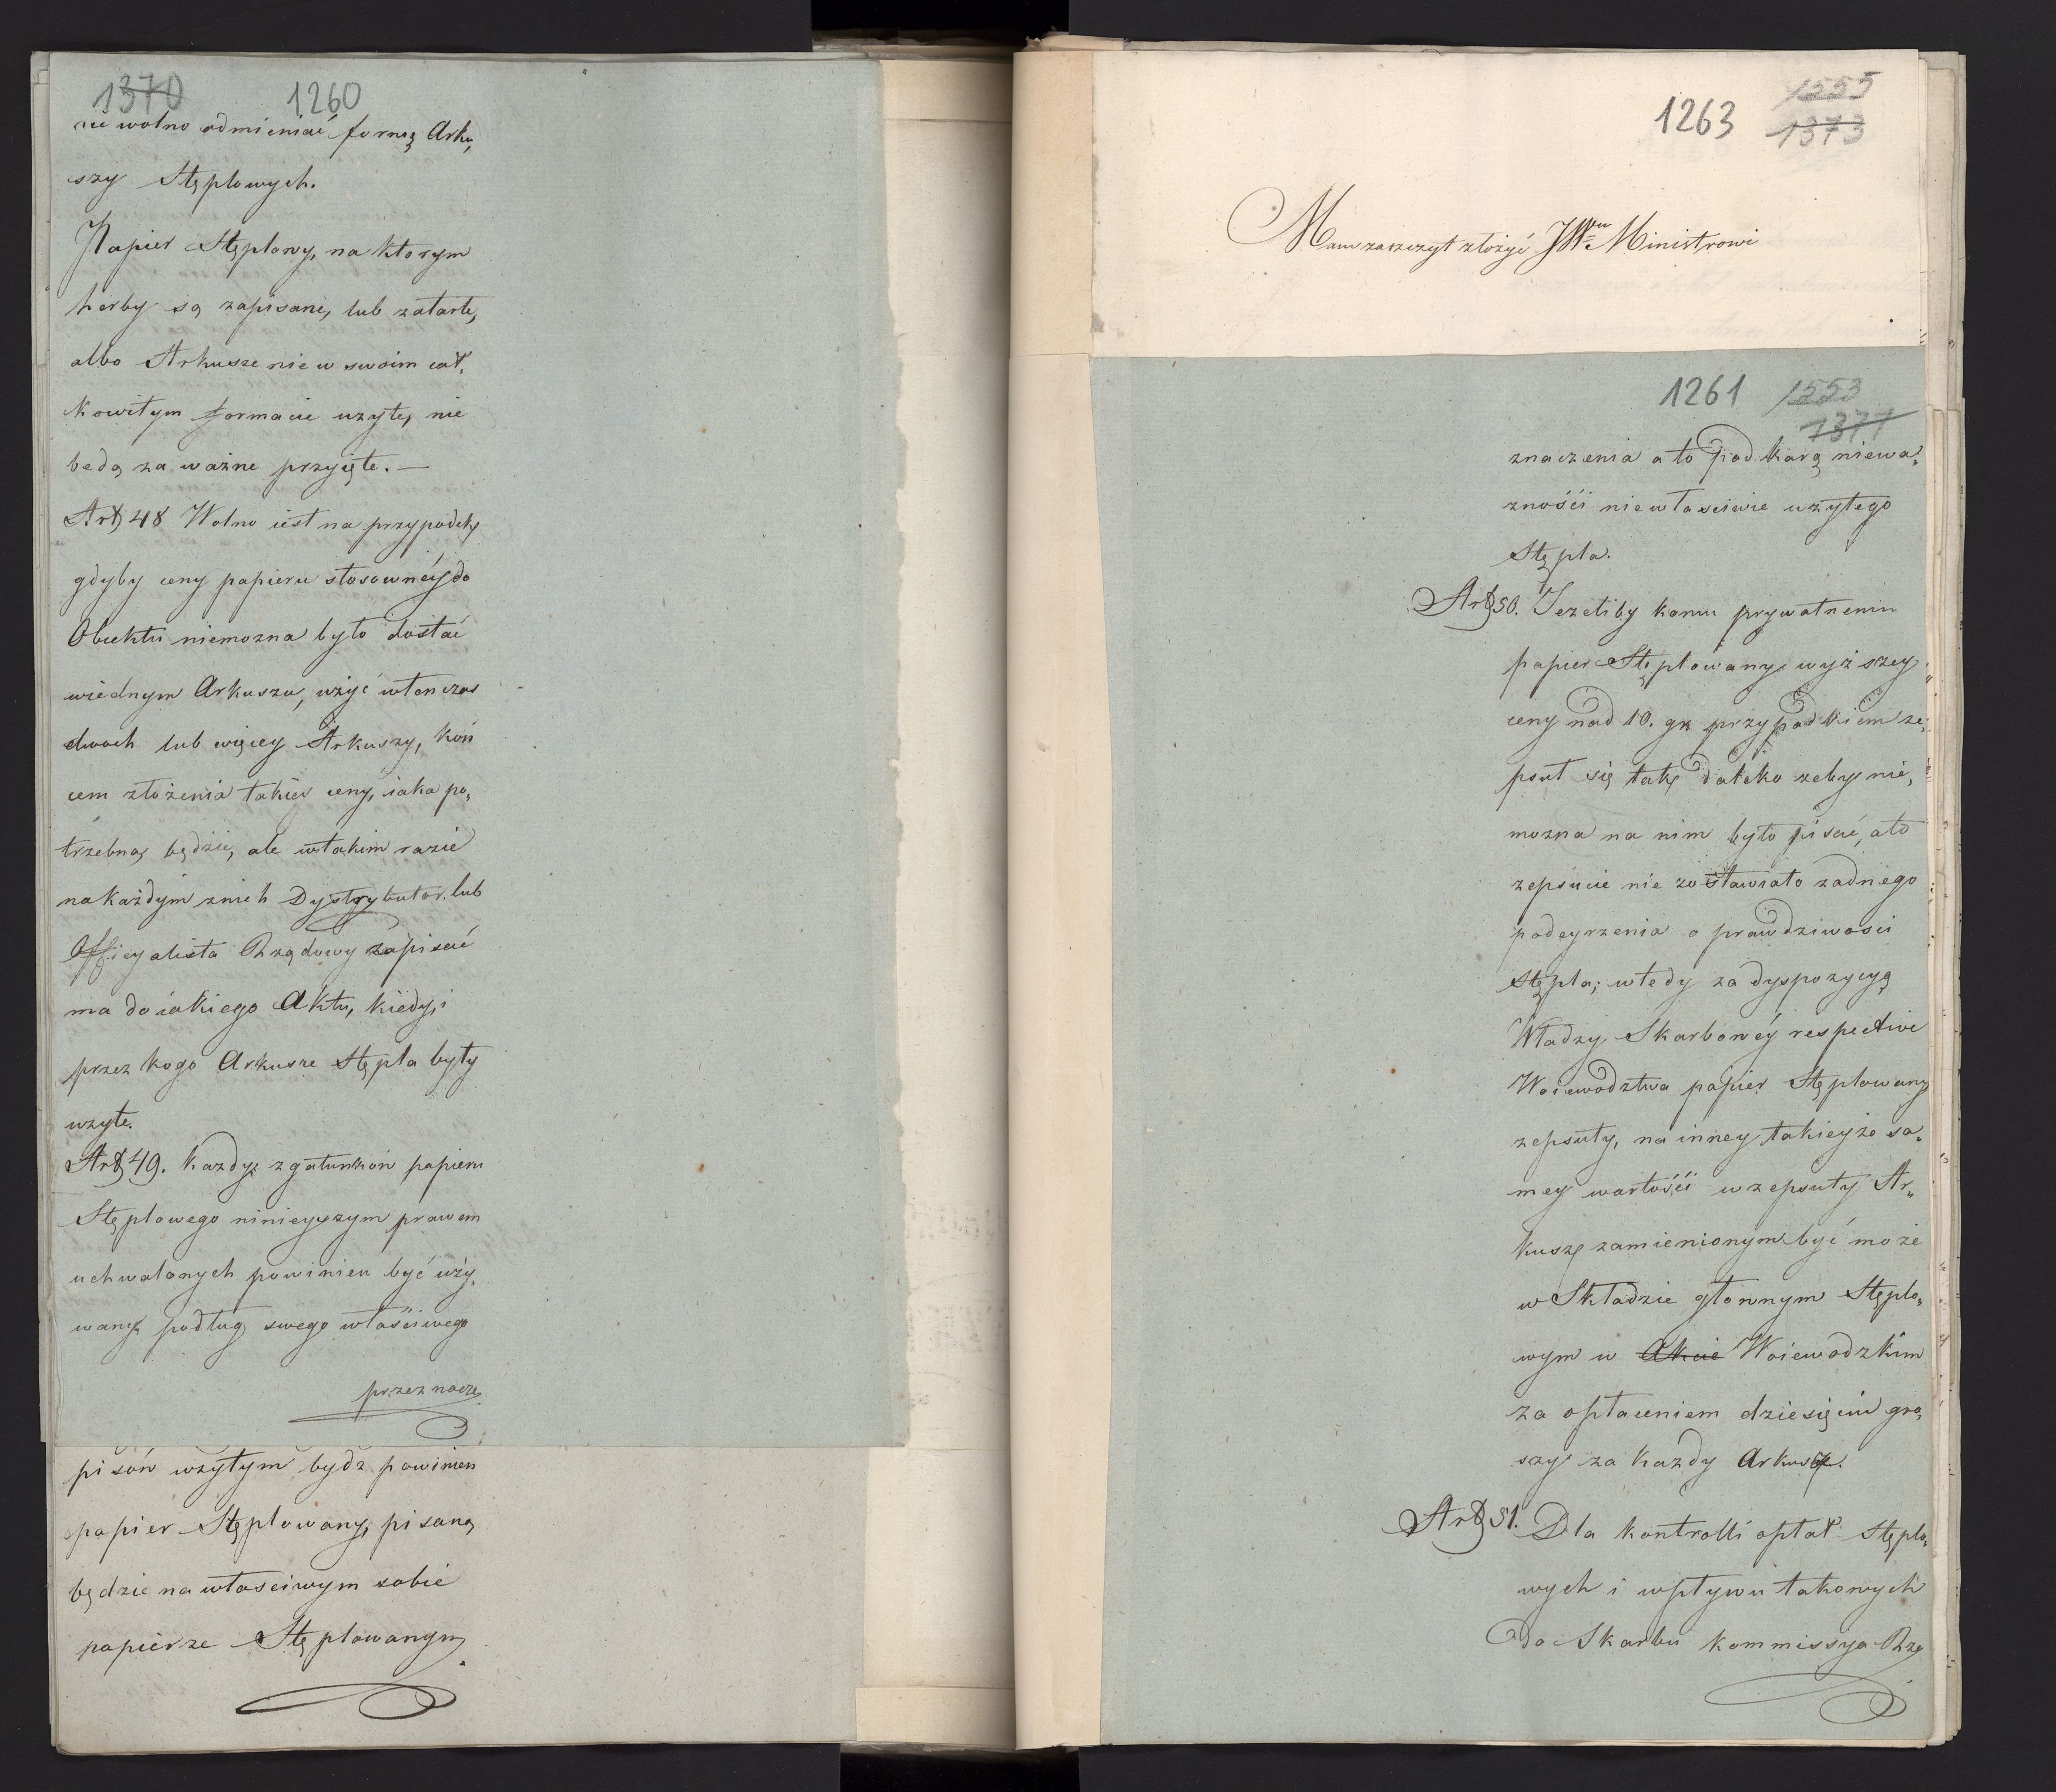 1370 1260
nie wolno odmieniać formę Arku„
szy Stęplowych.
Papier Stęplowy, na ktorym
herby są zapisane, lub zatarte,
albo Arkusze nie w swoim cał„
kowitym formacie uzyte, nie
bedą za ważne przyięte. —
Art 48 Wolno iest na przypadek
gdyby ceny papieru stosownéy do
Obiektu niemozna było dostać
wiednym Arkuszu, użyć wtenczas
dwoch lub więcey Arkuszy, koń
cem złożenia takiey ceny, iaka po„
trzebną będzie, ale wtakim razie
na każdym znich Dystrybutor lub
Officyalista Rządowy zapisać
ma do iakiego Aktu, kiedy, i
przez kogo Arkusze Stępla były
uzyte.
Art 49. każdy z gatunków papieru
Stęplowego ninieyszym prawem
uchwalonych powinien być uży„
wany podług swego właściwego
przeznacze
pisów uzytym bydz powinien
papier Stęplowany, pisaną
będzie na właściwym sobie
papierze Stęplowanym
1263 1555
1373
Mam zaszczyt złożyć JWmu Ministrowi
1261 1553
1371
znaczenia a to pod karą niewa„
zności niewłaściwie uzytego
Stępla.
Art 50. Jezeliby komu prywatnemu
papier Stęplowany wyższey
ceny nad 10. gr przypadkiem ze„
psuł się tak daleko zeby nie„
mozna na nim było pisać, a to
zepsucie nie zostawiało zadnego
podeyrzenia o prawdziwości
Stępla; wtedy za dyspozycyą
Władzy Skarbowéy respective
Woiewodztwa papier Stęplowany
zepsuty, na inney takieyże sa„
mey wartości w zepsuty Ar„
kusz zamienionym być może
w Składzie głownym Stęplo„
wym w Akcie Woiewodzkim
za opłaceniem dziesięciu gro„
szy za kazdy Arkusz.
Art 51. Dla kontrolli opłat Stęplo„
wych i wpływu takowych
do Skarbu kommissya Rzą